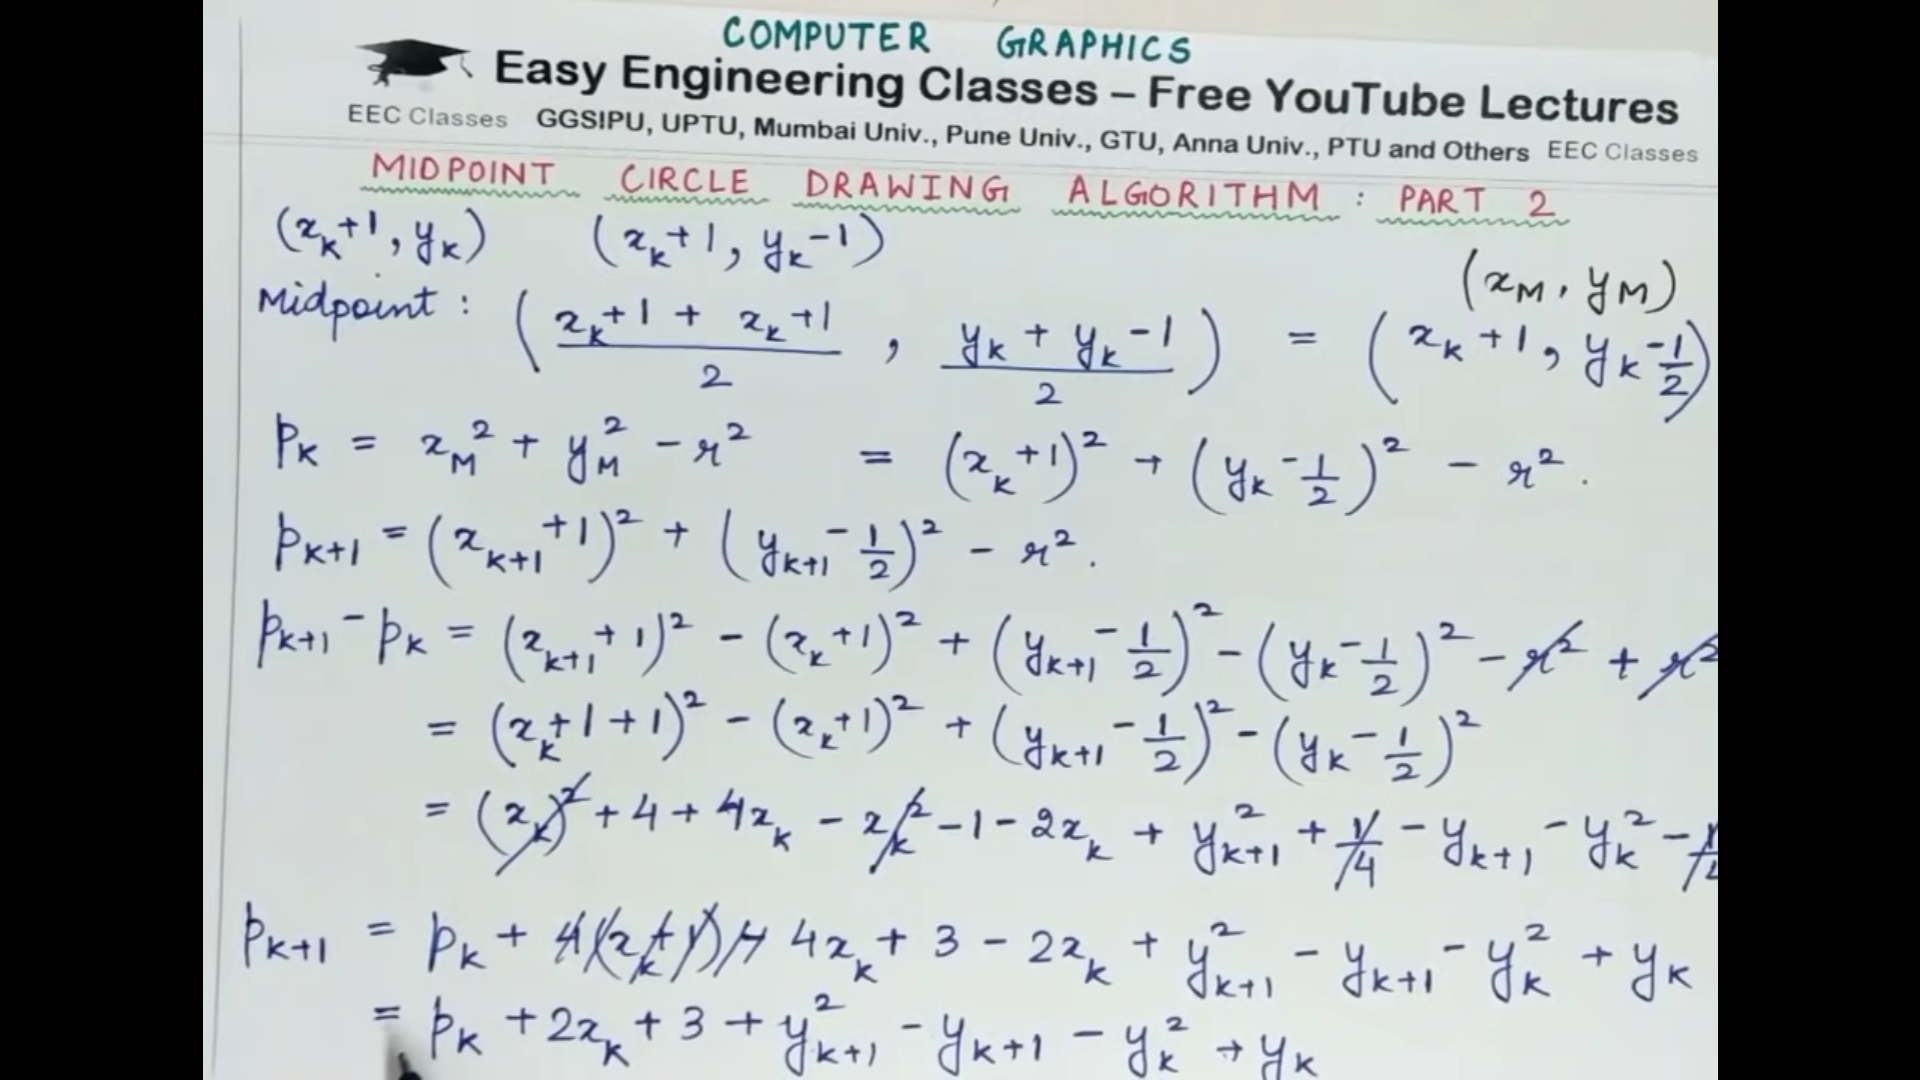 COMPUTER GRAPHICS
Easy Engineering Classes – Free YouTube Lectures
EEC Classes GGSIPU, UPTU, Mumbai Univ., Pune Univ., GTU, Anna Univ., PTU and Others EEC Classes
MIDPOINT CIRCLE DRAWING ALGORITHM : PART 2
(x_k+1, y_k) (x_k+1, y_k-1)
(x_M, y_M)
Midpoint : ((x_k+1 + x_k+1)/2 , (y_k + y_k-1)/2) = (x_k+1, y_k-1/2)
p_k = x_M² + y_M² - r² = (x_k+1)² + (y_k-1/2)² - r².
p_k+1 = (x_k+1+1)² + (y_k+1-1/2)² - r².
p_k+1 - p_k = (x_k+1+1)² - (x_k+1)² + (y_k+1-1/2)² - (y_k-1/2)² - r² + r²
= (x_k+1+1)² - (x_k+1)² + (y_k+1-1/2)² - (y_k-1/2)²
= (x_k)² + 4 + 4x_k - x_k² - 1 - 2x_k + y_k+1² + 1/4 - y_k+1 - y_k² - 1/4
p_k+1 = p_k + 4(x_k+1) + 4x_k + 3 - 2x_k + y_k+1² - y_k+1 - y_k² + y_k
= p_k + 2x_k + 3 + y_k+1² - y_k+1 - y_k² + y_k